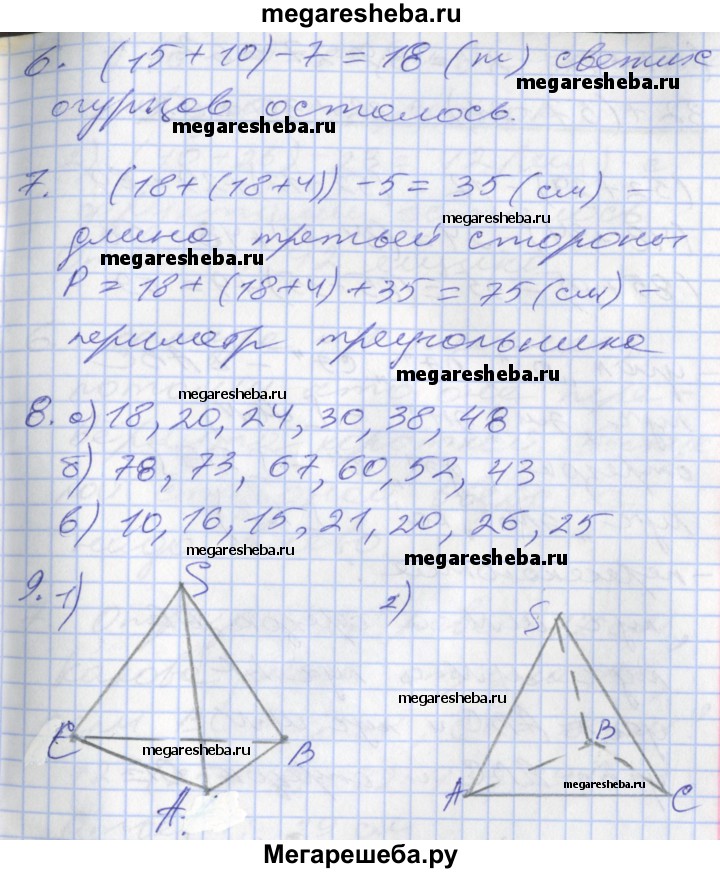 megaresheba.ru
6. (15+10)-7=18 (т) свежих
megaresheba.ru
огурцов осталось.
megaresheba.ru
7. (18+(18+4))-5=35(см) -
megaresheba.ru
длина третьей стороны
megaresheba.ru
P=18+(18+4)+35=75(см) -
периметр треугольника
megaresheba.ru
megaresheba.ru
8. а) 18, 20, 24, 30, 38, 48
б) 78, 73, 67, 60, 52, 43
в) 10, 16, 15, 21, 20, 26, 25
megaresheba.ru
megaresheba.ru
9. 1) S
2) S
megaresheba.ru
C B
megaresheba.ru
B
megaresheba.ru
A
A C
Мегарешеба.ру